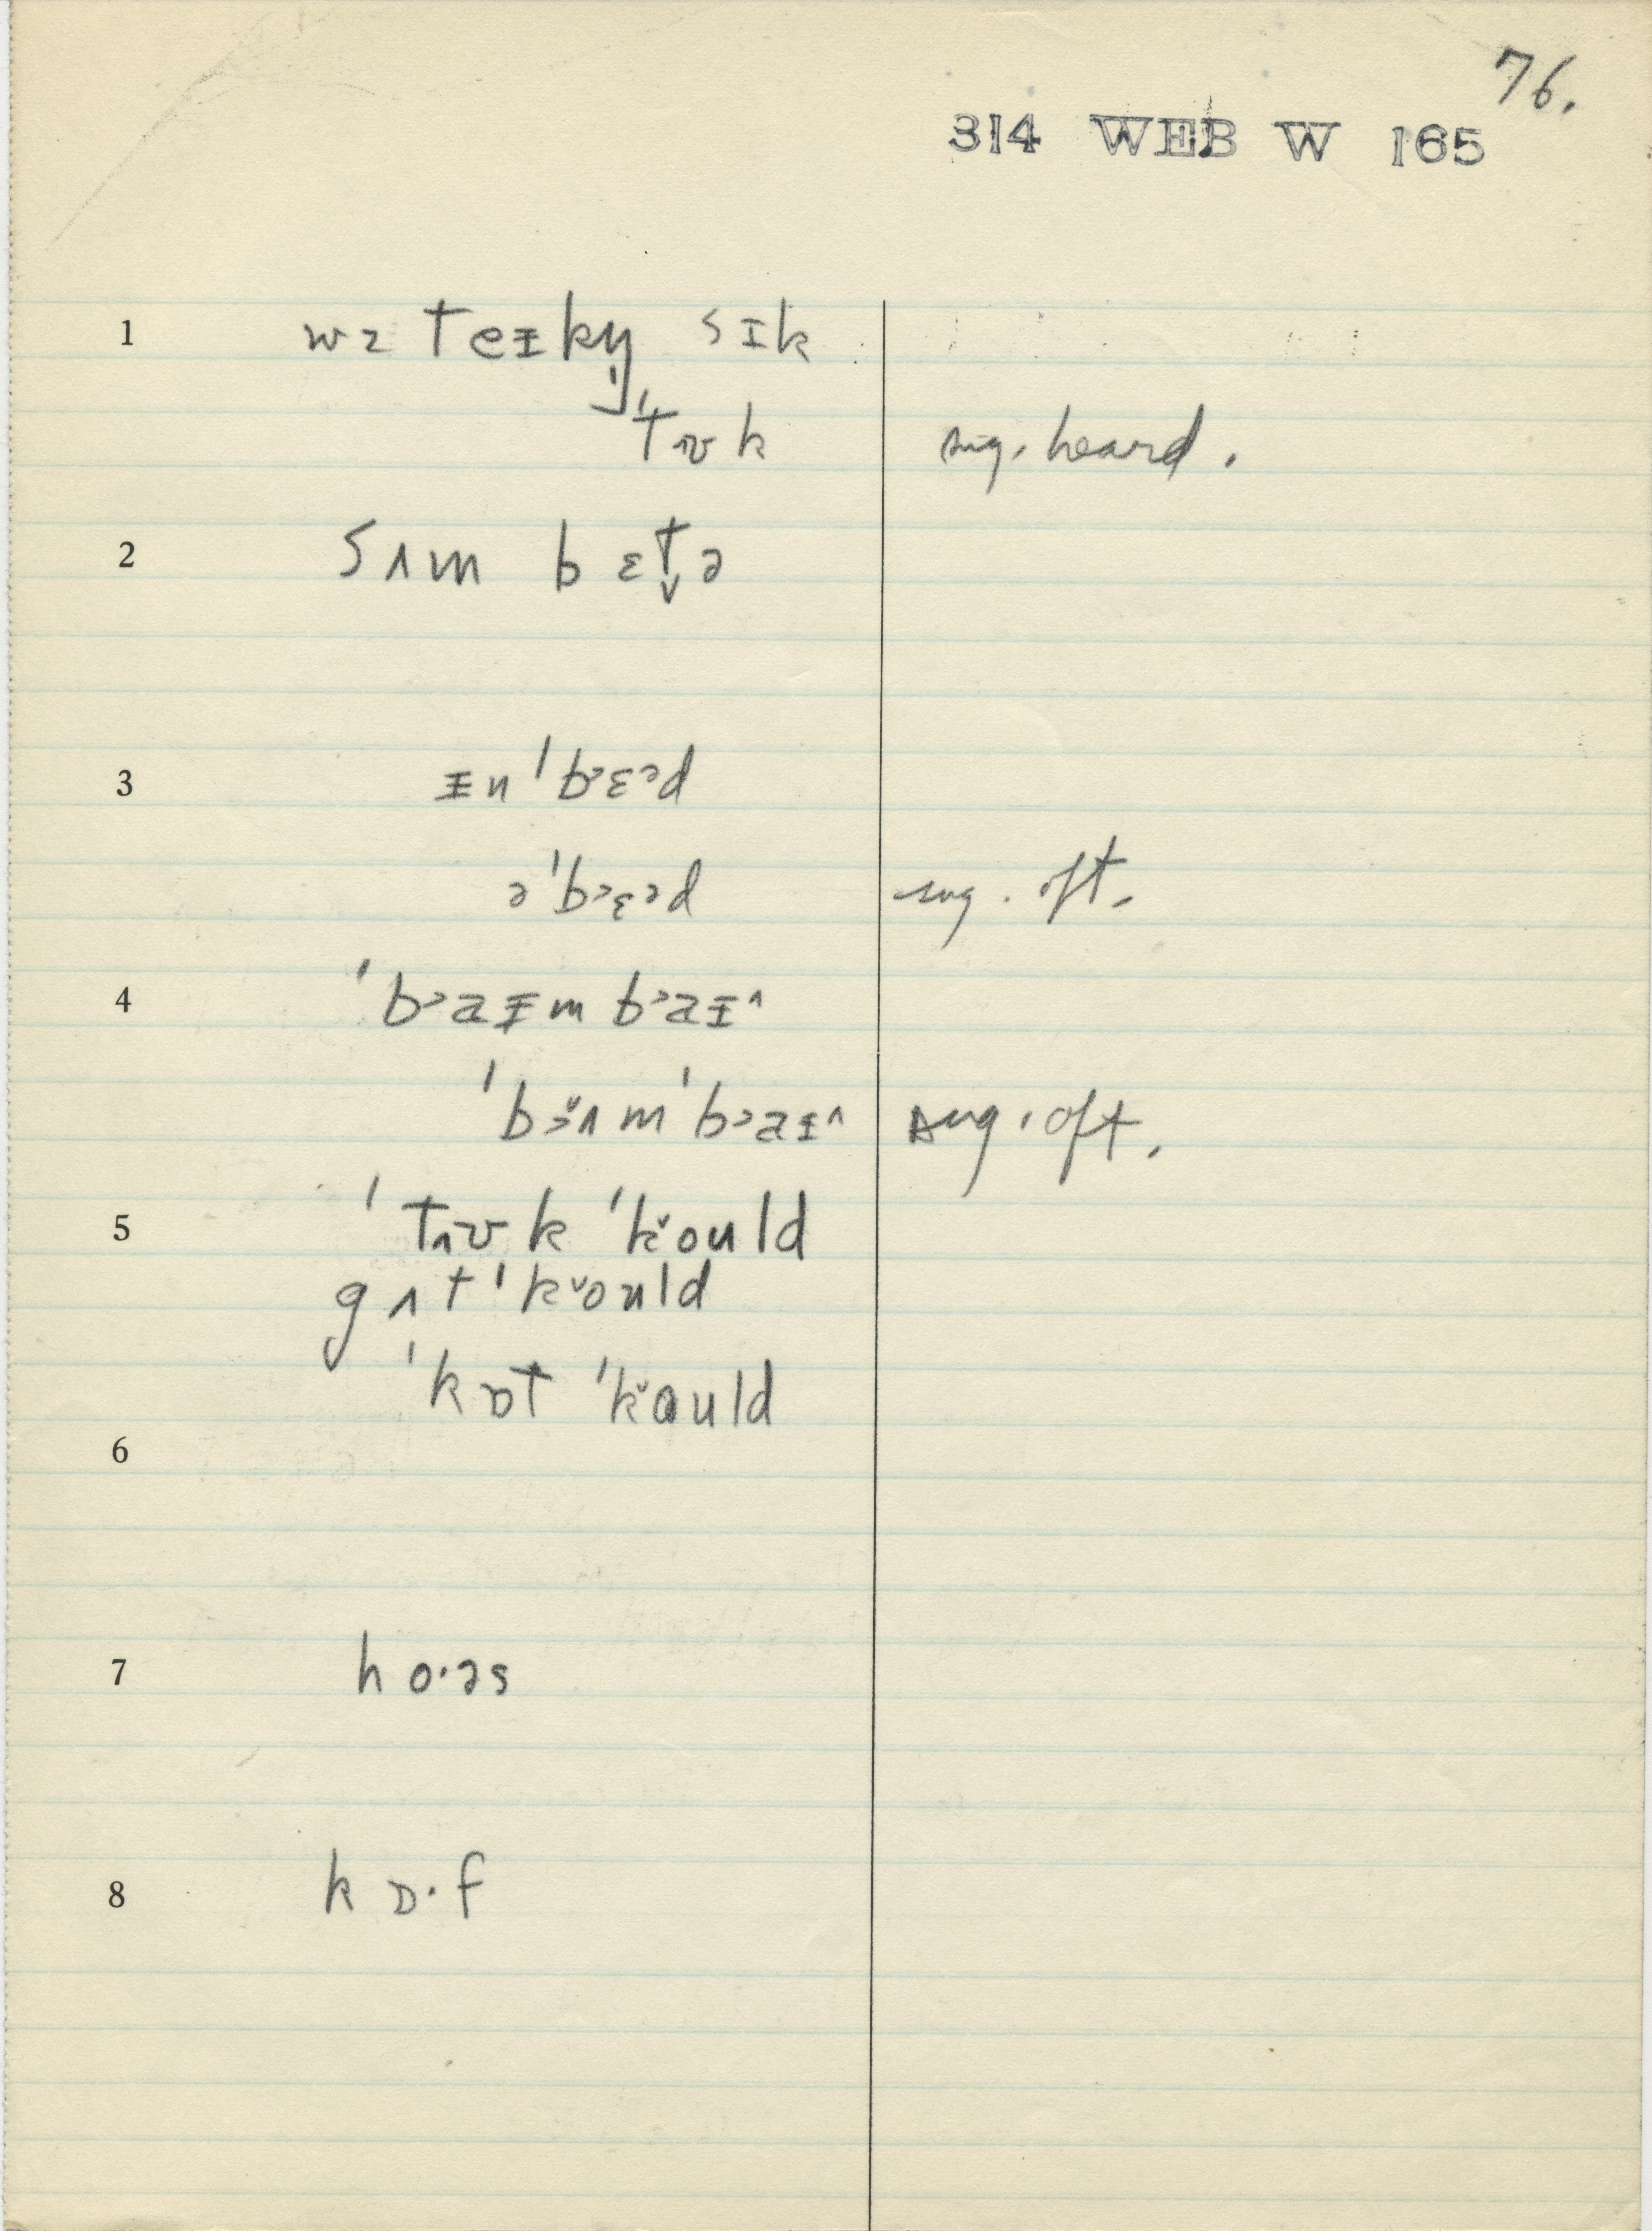 76.
314 WEB W 165
1 wəz teɪkŋ sɪk
'tʊk sug. heard.
2 sʌm bɛt̬ə
3 ɪn 'bɛəd
ə'bɛəd sug. oft.
4 'b>aɪm b>aɪ^
'b>ʌm 'b>aɪ^ sug. oft.
5 'tʊk 'k̆ould
gʌt 'k̆ould
'kɒt 'k̆ould
6
7 ho·əs
8 kɒ·f